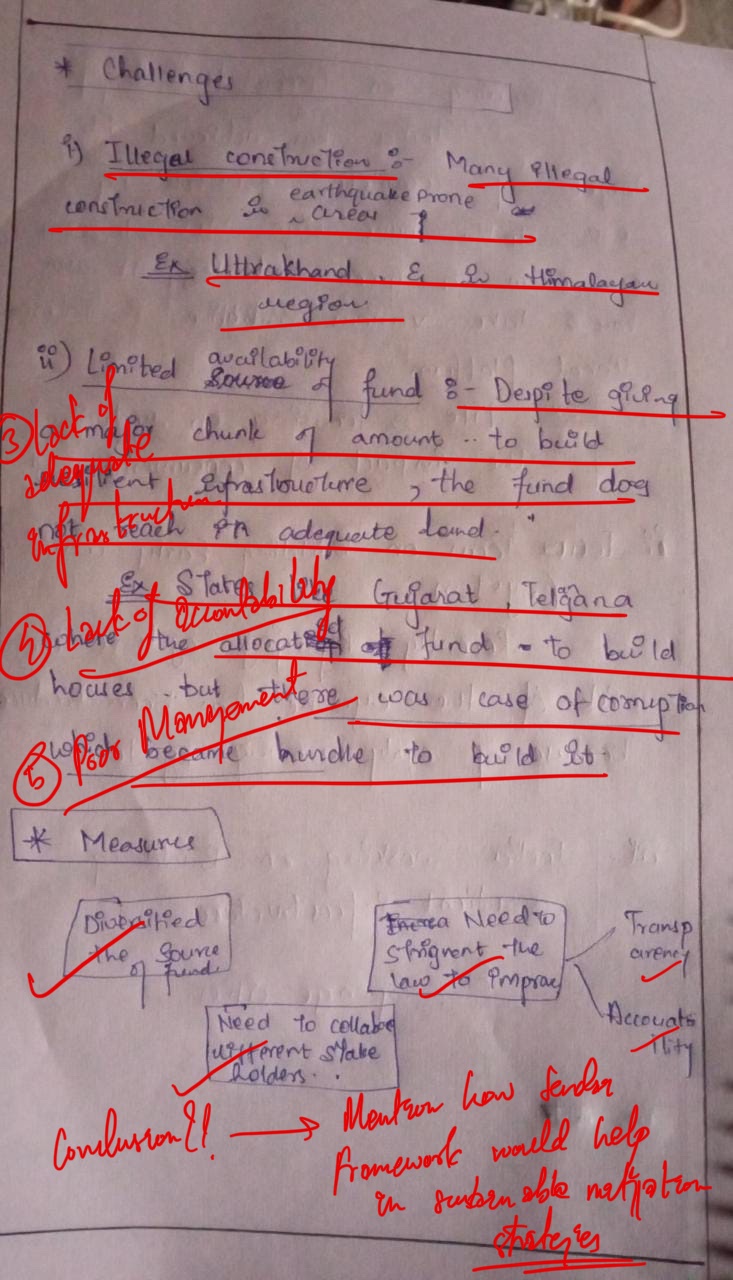 * Challenges
i) Illegal construction :- Many illegal
construction in earthquake prone areas
Ex Uttrakhand, & in Himalayan
region
ii) Limited availability of fund :- Despite giving
major chunk of amount to build
infrastructure, the fund
not reach in adequate
Ex States Gujarat, Telgana
where the allocated fund to build
houses but there was case of corruption
which became hurdle to build it
③ Lack of
adequate
infrastructure
④ Lack of Accountability
⑤ Poor Management
* Measures
Diversified
the source
of fund
Need to
stringent the
law to
Transp
arency
Accountability
Need to collabe
different stake
holders..
Conclusion?! → Mention how Sendai
framework would help
in mitigation
strategies